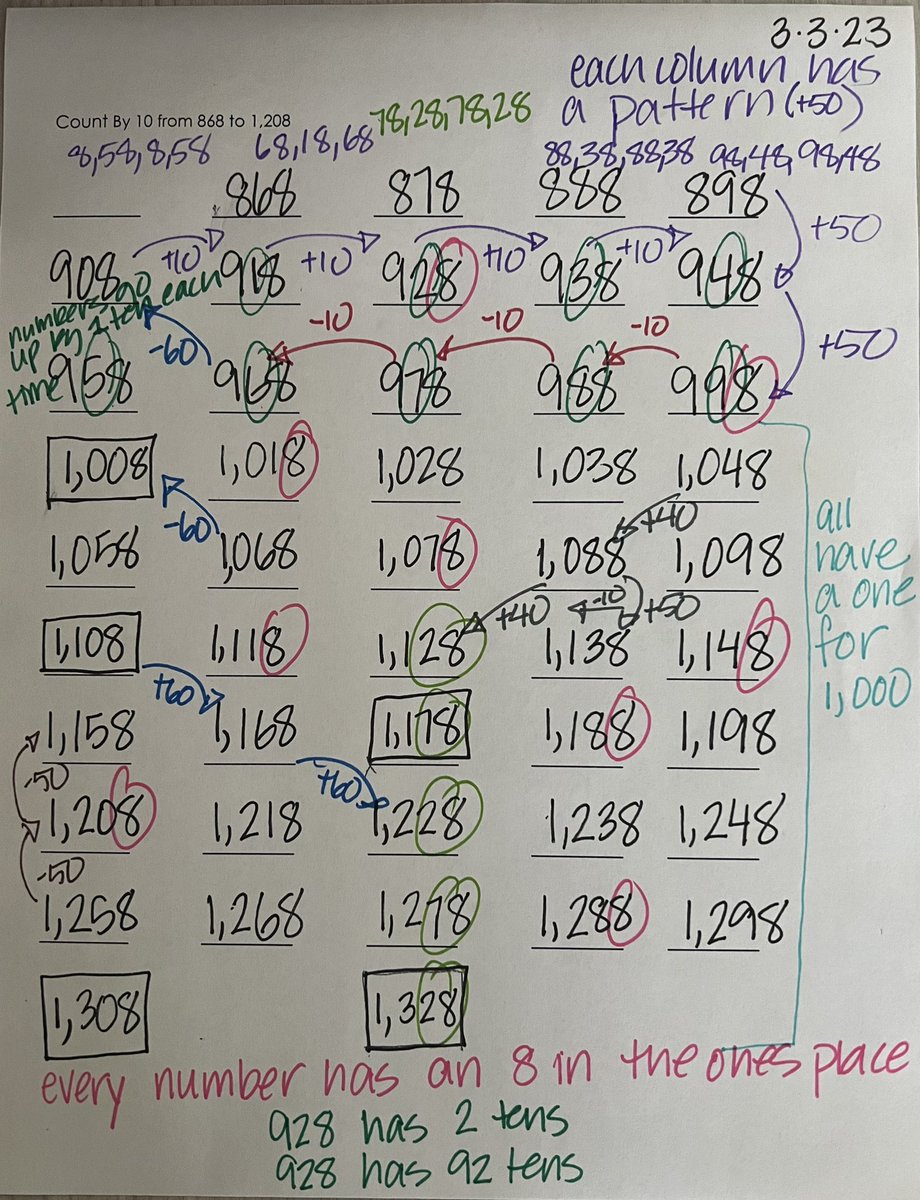 3.3.23
each column has
a pattern (+50)
Count By 10 from 868 to 1,208
8,58,8,58 68,18,68 78,28,78,28 88,38,88,38 98,48,98,48
868 878 888 898
+50
+10 +10 +10 +10
908 918 928 938 948
numbers go
up by 1 ten each
time
-60 -10 -10 -10 +50
958 968 978 988 998
1,008 1,018 1,028 1,038 1,048
-60 +40
1,058 1,068 1,078 1,088 1,098
+40 -10 +50
1,108 1,118 1,128 1,138 1,148
all
have
a one
for
1,000
+60
1,158 1,168 1,178 1,188 1,198
-50 +60
1,208 1,218 1,228 1,238 1,248
-50
1,258 1,268 1,278 1,288 1,298
1,308 1,328
every number has an 8 in the ones place
928 has 2 tens
928 has 92 tens